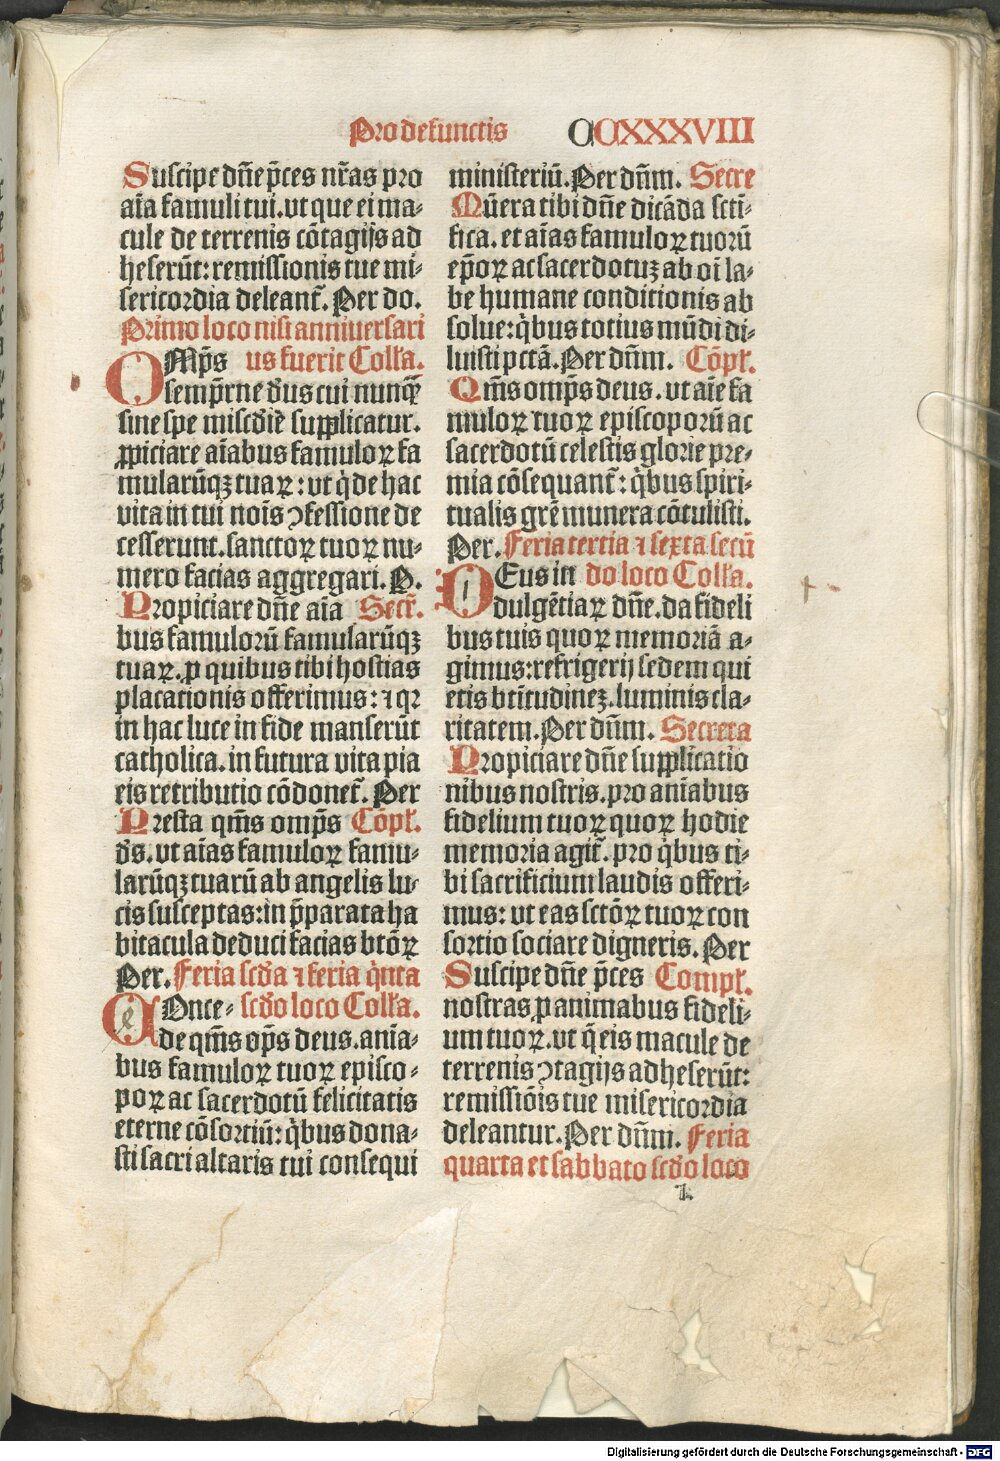 Pro defunctis CCXXXVIII
Suscipe dn̄e p̄ces nr̄as pro
aīa famuli tui. vt que ei ma⸗
cule de terrenis cōtagijs ad
heserūt: remissionis tue mi⸗
sericordia deleant̄. Per do.
Primo loco nisi anniuersari
OMp̄s us fuerit Coll'a.
semp̄rne d̄us cui nunq̄ꝫ
sine spe misc̄die supplicatur.
ꝓpiciare aīabus famuloꝝ fa
mularūqꝫ tuaꝝ: vt q̇ de hac
vita in tui noīs ꝯfessione de
cesserunt. sanctoꝝ tuoꝝ nu⸗
mero facias aggregari. P.
Propiciare dn̄e aīa Secr̄.
bus famulorū famularūqꝫ
tuaꝝ. ꝓ quibus tibi hostias
placationis offerimus: ⁊ qꝛ
in hac luce in fide manserūt
catholica. in futura vita pia
eis retributio cōdonet̄. Per
Presta qm̄s omp̄s Cōpl'.
d̄s. vt aīas famuloꝝ famu⸗
larūqꝫ tuarū ab angelis lu⸗
cis susceptas: in p̄parata ha
bitacula deduci facias btōꝝ
Per. Feria scd̄a ⁊ feria q̇nta
COnce⸗ scd̄o loco Coll'a.
de qm̄s op̄s deus. anīa⸗
bus famuloꝝ tuoꝝ episco⸗
poꝝ ac sacerdotū felicitatis
eterne cōsortiū: q̇bus dona⸗
sti sacri altaris tui consequi
ministeriū. Per dn̄m. Secre
Mūera tibi dn̄e dicāda scti⸗
fica. et aīas famuloꝝ tuorū
ep̄oꝝ ac sacerdotuꝫ ab oī la⸗
be humane conditionis ab
solue: q̇bus totius mūdi di⸗
luisti pctā. Per dn̄m. Cōpl'.
Qm̄s omp̄s deus. vt aīe fa
muloꝝ tuoꝝ episcoporū ac
sacerdotū celestis glorie pre⸗
mia cōsequant̄: q̇bus spiri⸗
tualis grē munera cōtulisti.
Per. Feria tertia ⁊ sexta secū
DEus in do loco Coll'a.
dulgētiaꝝ dn̄e. da fideli
bus tuis quoꝝ memoriā a⸗
gimus: refrigerij sedem qui
etis btītudineꝫ. luminis cla⸗
ritatem. Per dn̄m. Secreta
Propiciare dn̄e supplicatio
nibus nostris. pro anīabus
fidelium tuoꝝ quoꝝ hodie
memoria agit̄. pro q̇bus ti⸗
bi sacrificium laudis offeri⸗
mus: vt eas sctōꝝ tuoꝝ con
sortio sociare digneris. Per
Suscipe dn̄e p̄ces Compl'.
nostras ꝓ animabus fideli⸗
um tuoꝝ. vt q̄ eis macule de
terrenis ꝯtagijs adheserūt:
remissiōis tue misericordia
deleantur. Per dn̄m. Feria
quarta et sabbato scd̄o loco
Digitalisierung gefördert durch die Deutsche Forschungsgemeinschaft - DFG